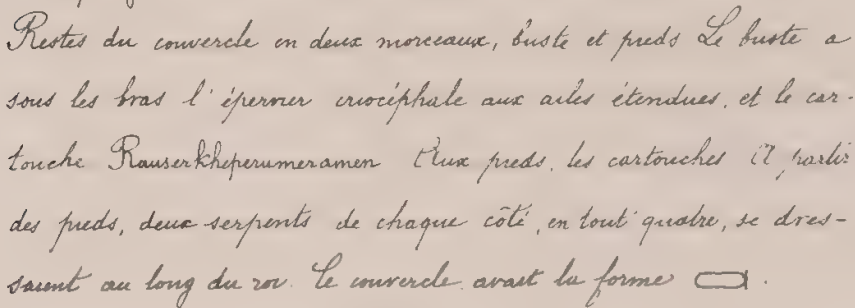 Restes du couvercle en deux morceaux, buste et pieds Le buste a
sous les bras l'épervier criocéphale aux ailes étendues, et le car-
touche Rauserkheperumeramen Aux pieds, les cartouches A partir
des pieds, deux serpents de chaque côté, en tout quatre, se dres-
saient au long du roi. Le couvercle avait la forme